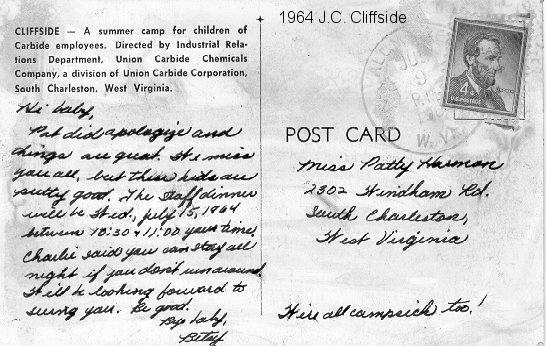 1964 J.C. Cliffside
CLIFFSIDE — A summer camp for children of
Carbide employees. Directed by Industrial Rela-
tions Department, Union Carbide Chemicals
Company, a division of Union Carbide Corporation,
South Charleston, West Virginia.
Hi baby,
Pat did apologize and
things are great. We miss
you all, but these kids are
pretty good. The staff dinner
will be Wed., July 15, 1964
between 10:30 & 11:00 your time.
Charlie said you can stay all
night if you don't run around.
We'll be looking forward to
seeing you. Be good.
Bye baby,
Betsy
JUL
W. VA.
4¢
U.S. POSTAGE
POST CARD
Miss Patty Harmon
2302 Windham Rd.
South Charleston,
West Virginia
We're all campsick too!